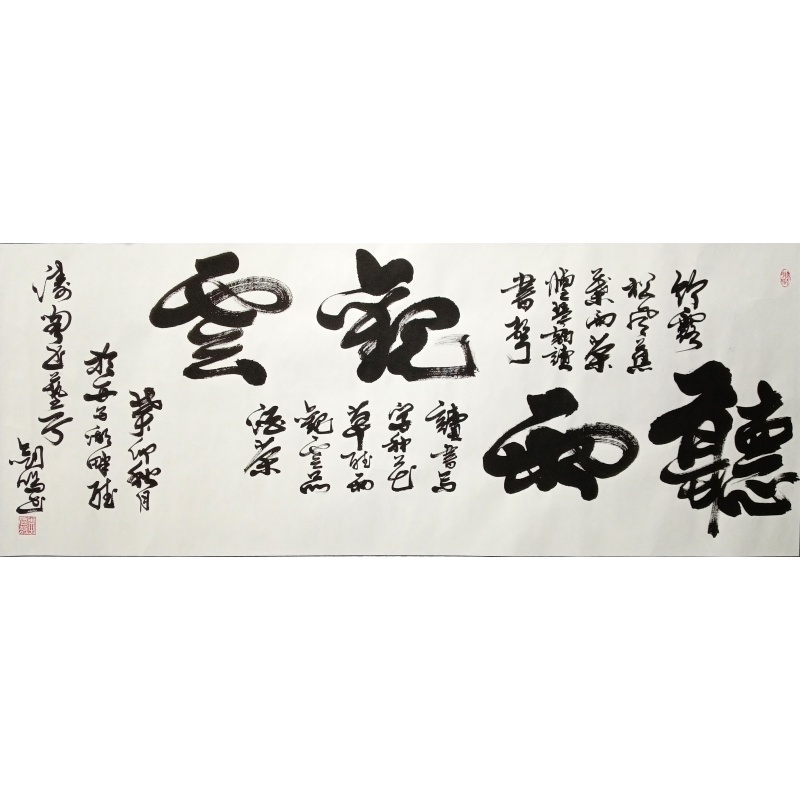 聽雨
竹露
松風蕉
葉雨茶
琴韻讀
書聲
觀雲
讀書寫
字種花
草聽雨
觀雲品
酒茶
癸卯秋月
於西子湖畔聽
濤